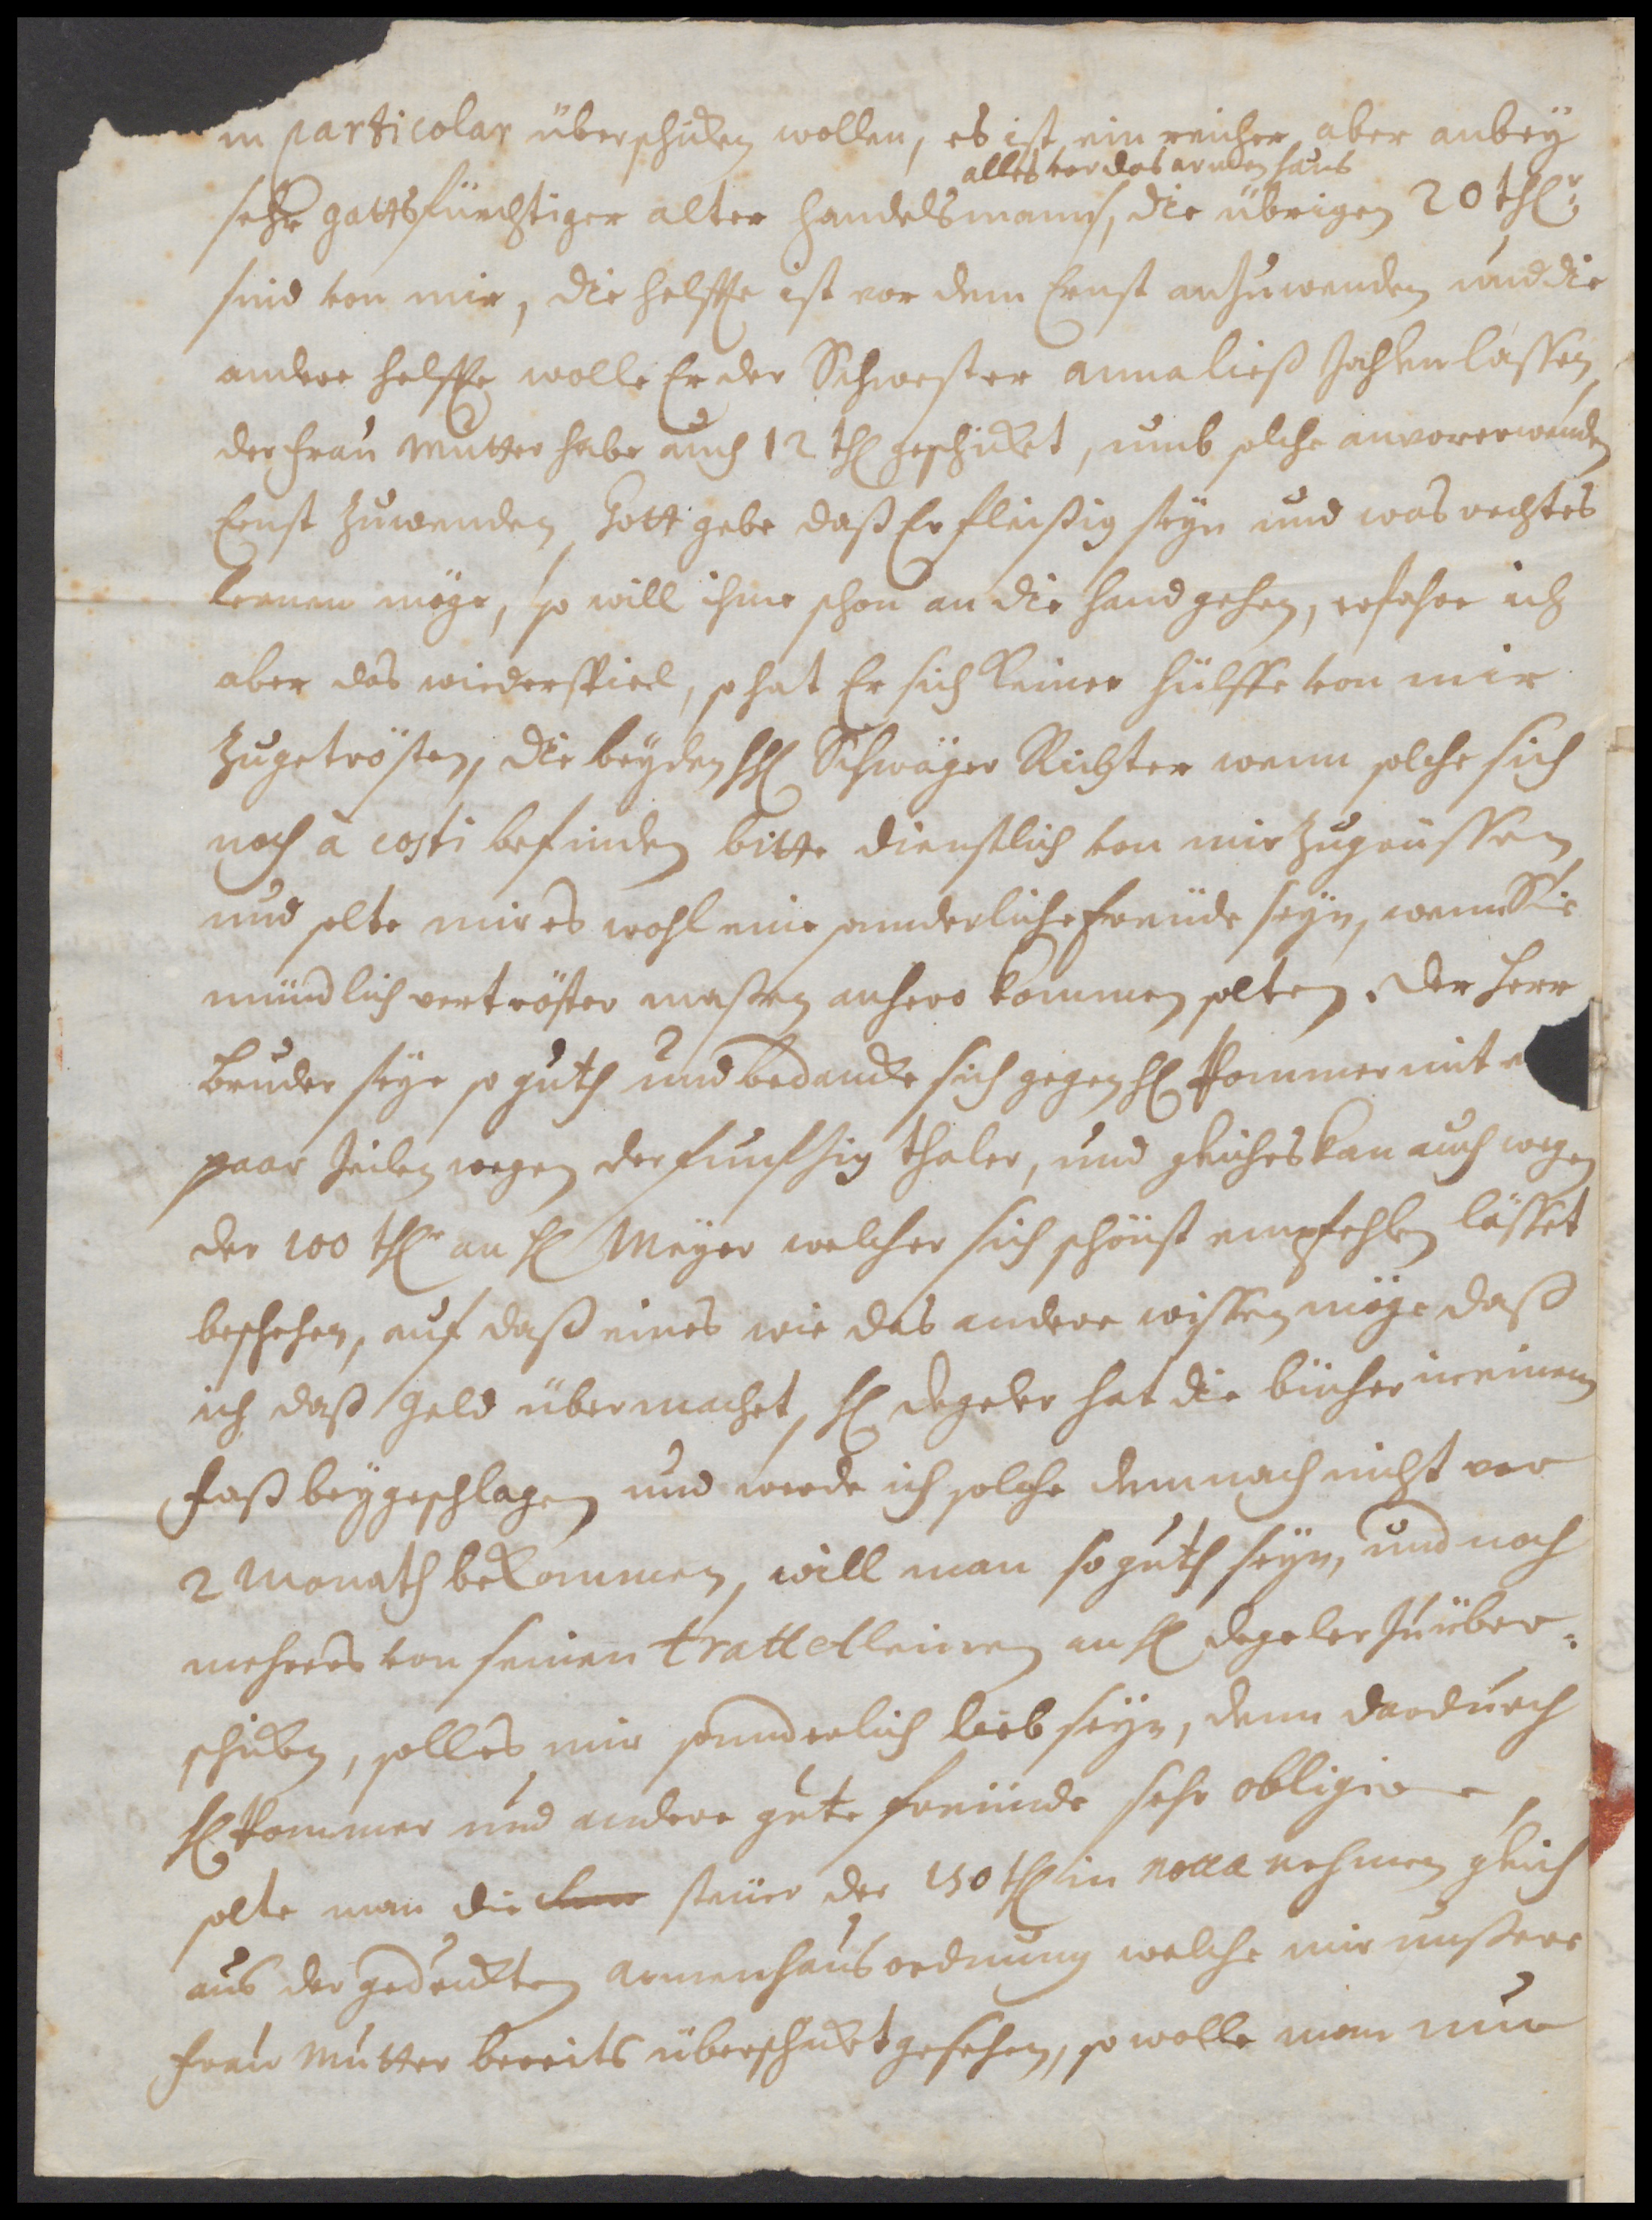 in particolar überschicken wollen, es ist ein reicher aber anbey
alles vor das armen haus
sehr gottsfürchtiger alter handelsmann, die übrigen 20 thlr:
sind von mir, die helffte ist vor dem Ernst anzuwenden und die
andere helffte wolle Er der Schwester annaließ zahlen lassen,
der frau Mutter habe auch 12 thl geschicket, umb solche
Ernst zuwenden, Gott gebe daß Er fleißig seyn und was rechtes
lernen möge, so will ihme schon an die hand gehen, erfahre ich
aber das wiederspiel, so hat Er sich keiner hülffe von mir
zugetrösten, die beyden HH Schwäger Richter wenn solche sich
noch à costi befinden bitte dienstlich von mir zugrüssen,
und solte mir es wohl eine sonderliche freude seyn, wenn Sie
mündlich vertröster maßen anhero kommen solten. Der Herr
Bruder seye so guth und bedancke sich gegen H Pommer mit e
paar zeilen wegen der funfzig thaler, und gleiches kan auch wegen
der 100 thlr an H Meyer welcher sich schönst empfehlen lässet
beschehen, auf daß eines wie das andere wissen möge daß
ich daß Geld übermachet, H Degeler hat die bücher in einem
faß beygeschlagen und werde ich solche demnach nicht vor
2 Monath bekommen, will man so guth seyn, und noch
mehrers von seinen trattetleinen an H Degeler zu über=
schicken, soll es mir sonderlich lieb seyn, denn dardurch
H Pommer und andere gute freunde sehr obligire
solte man die steuer der 150 thl in notta nehmen gleich
aus der gedruckten armenhausordnung welche mir unßere
frau Mutter bereits überschicket gesehen, so wolle man nur